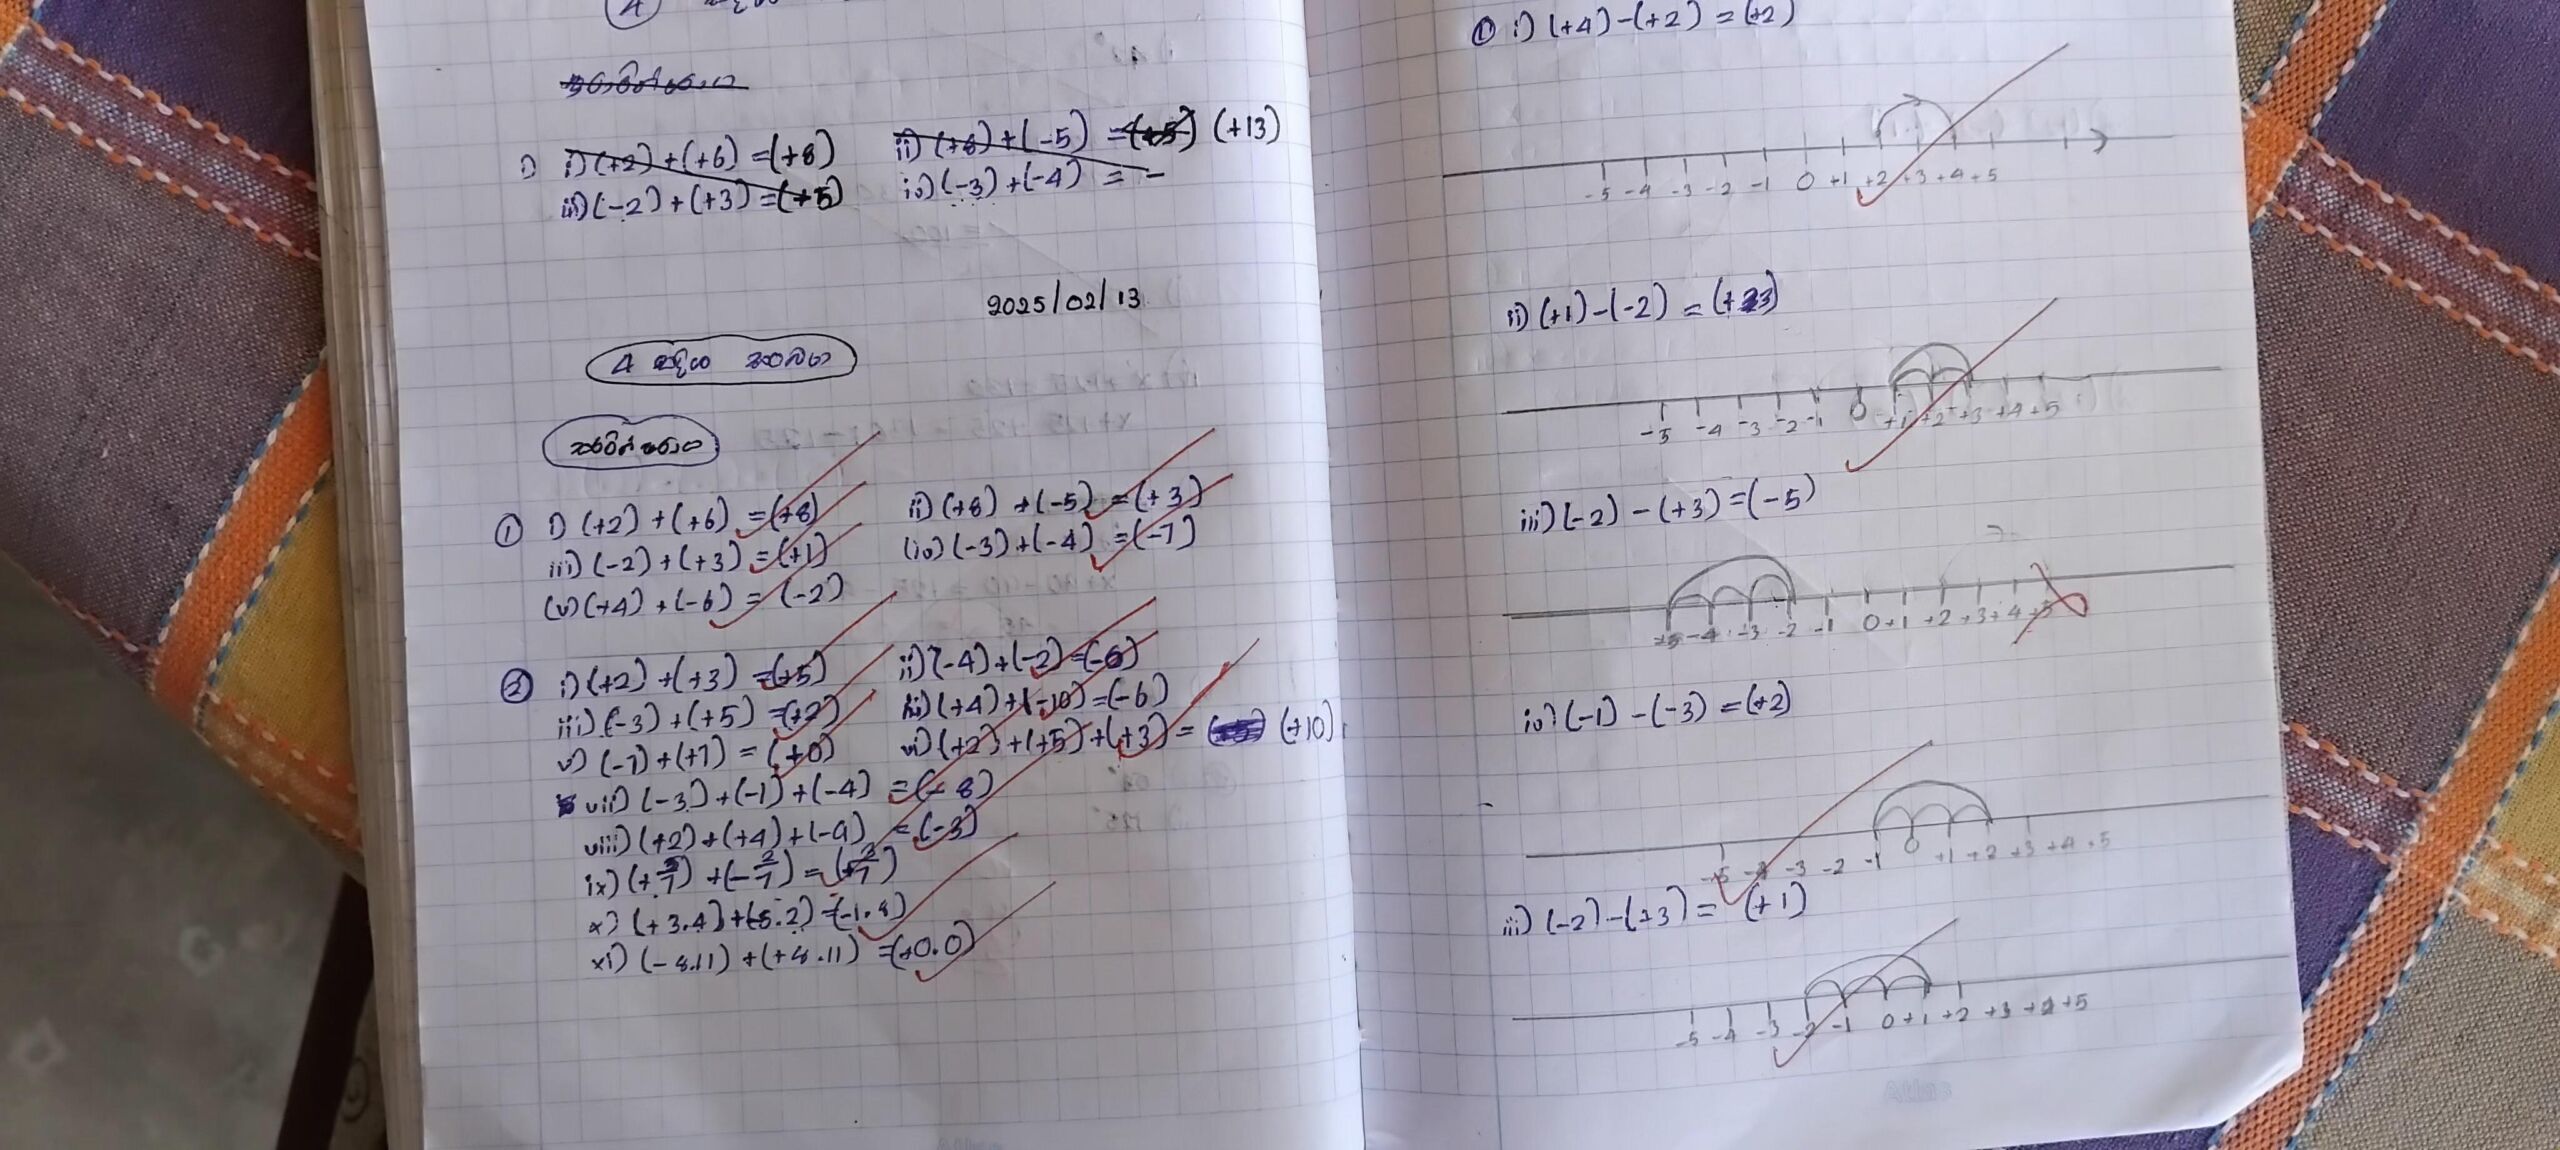 4
i) (+2) + (+6) = (+8) ii) (+8) + (-5) = (+3) (+13)
iii) (-2) + (+3) = (+5) iv) (-3) + (-4) = -
2025/02/13
4 සදිශ සංඛ්‍යා
① i) (+2) + (+6) = (+8) ii) (+8) + (-5) = (+3)
iii) (-2) + (+3) = (+1) (iv) (-3) + (-4) = (-7)
(v) (+4) + (-6) = (-2)
② i) (+2) + (+3) = (+5) ii) (-4) + (-2) = (-6)
iii) (-3) + (+5) = (+2) iv) (+4) + (-10) = (-6)
v) (-7) + (+7) = (+0) vi) (+2) + (+5) + (+3) = (+10)
vii) (-3) + (-1) + (-4) = (-8)
viii) (+2) + (+4) + (-9) = (-3)
x) (+3.4) + (-5.2) = (-1.8)
xi) (-8.11) + (+8.11) = (+0.0)
① i) (+4) - (+2) = (+2)
-5 -4 -3 -2 -1 0 +1 +2 +3 +4 +5
ii) (+1) - (-2) = (+3)
-5 -4 -3 -2 -1 0 +1 +2 +3 +4 +5
iii) (-2) - (+3) = (-5)
-5 -4 -3 -2 -1 0 +1 +2 +3 +4 +5
iv) (-1) - (-3) = (+2)
-5 -4 -3 -2 -1 0 +1 +2 +3 +4 +5
iii) (-2) - (+3) = (+1)
-5 -4 -3 -2 -1 0 +1 +2 +3 +4 +5
Atlas